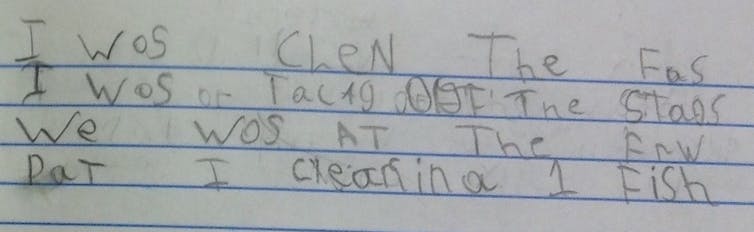 I WOS CLeN The FaS
I WOS or Tacig The STaGS
We WOS AT The Frw
PaT I cleanina 1 Fish